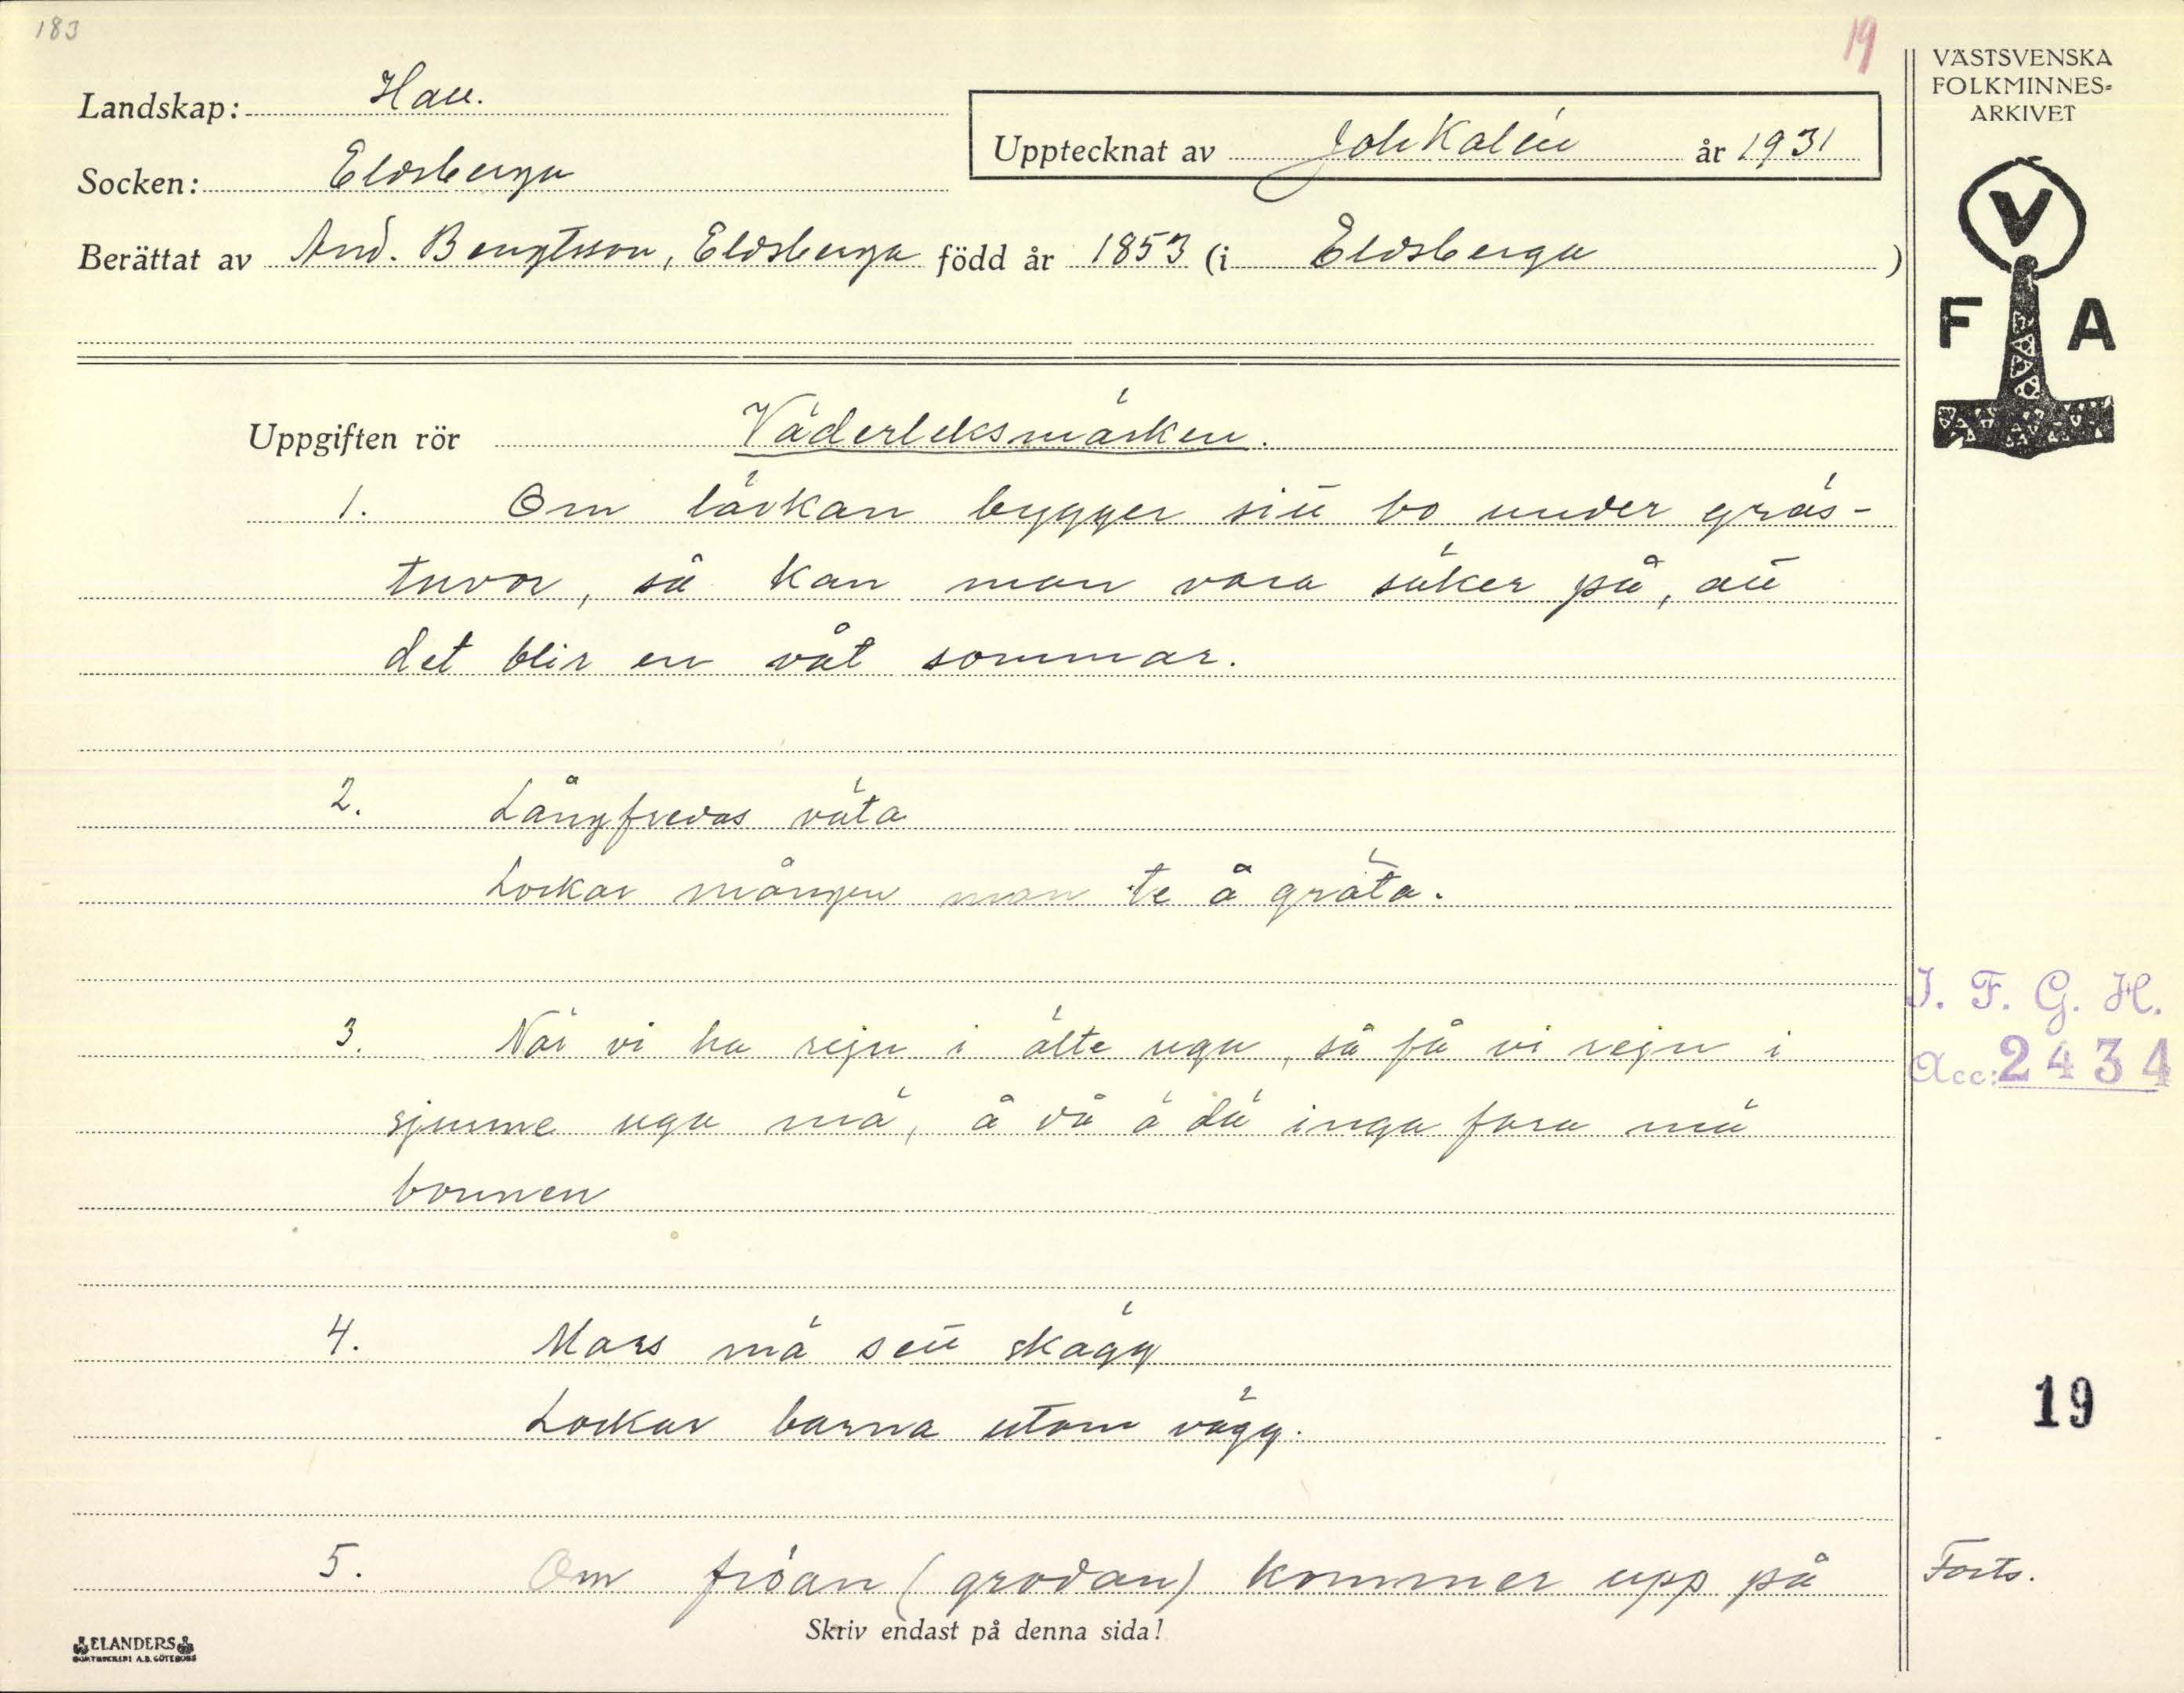 183
19
Landskap: Hall.
Socken: Eldsberga
Upptecknat av Joh Kalén år 1931
Berättat av And. Bengtsson, Eldsberga född år 1853 (i Eldsberga)
VÄSTSVENSKA
FOLKMINNES-
ARKIVET
V
F A
Uppgiften rör Väderleksmärken.
1. Om lärkan bygger sitt bo under gräs-
tuvor, så kan man vara säker på, att
det blir en våt sommar.
2. Långfredas väta
Lockar mången man te å gräta.
3. När vi ha rejn i ätte ugu, så få vi rejn i
sjumme ugu mä, å då ä dä inga fara mä
bonnen
4. Mars mä sett skägg
Lockar barna utom vägg.
5. Om fröan (grodan) kommer upp på
Forts.
I. F. G. H.
Acc: 2434
19
Skriv endast på denna sida!
ELANDERS
BOKTRYCKERI A.B. GÖTEBORG